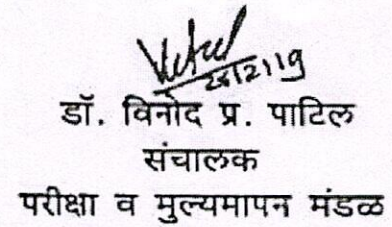 डॉ. विनोद प्र. पाटिल
संचालक
परीक्षा व मुल्यमापन मंडळ